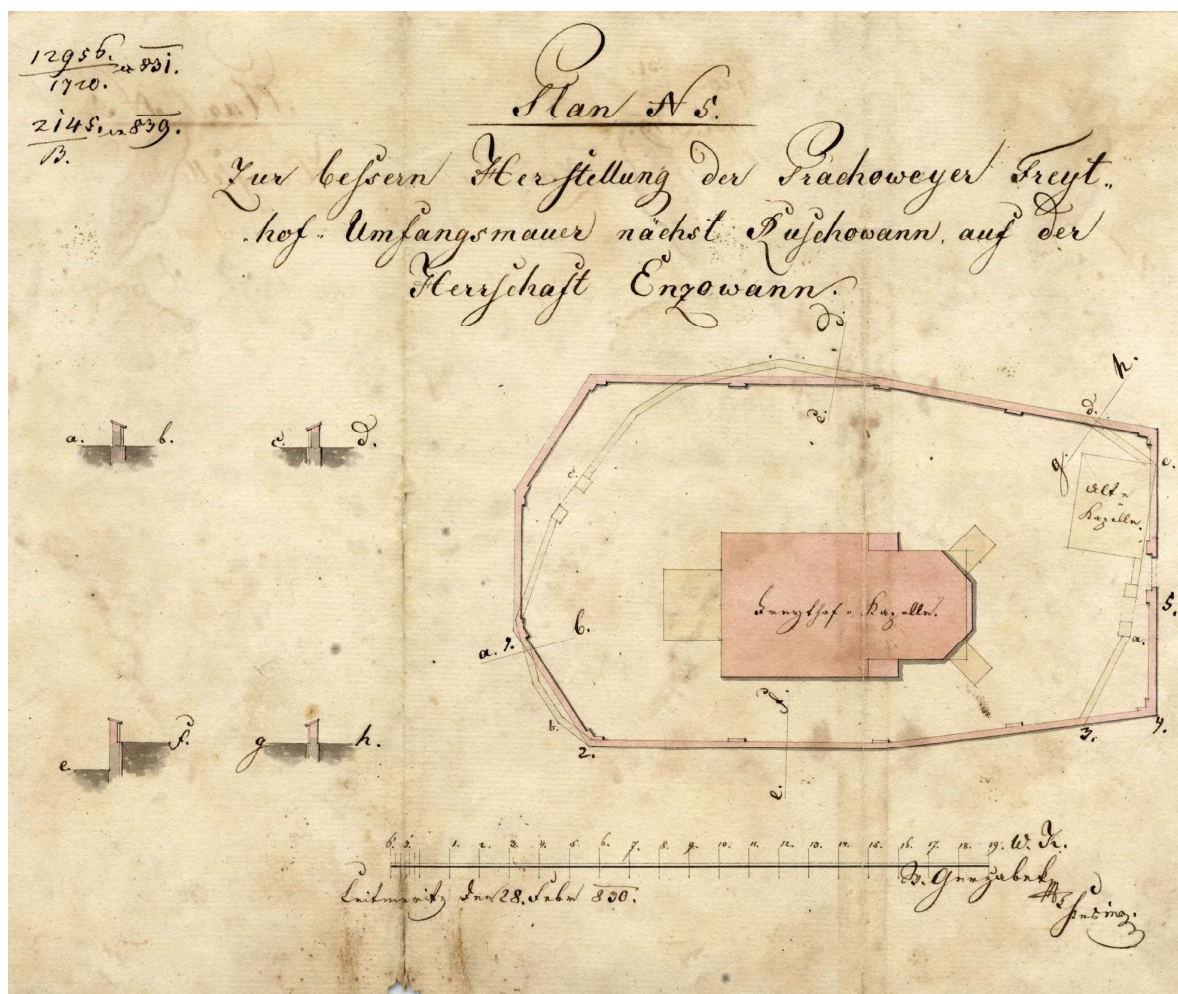 12956. in 831.
1720.
2145. in 839.
B.
Plan N 5.
Zur beßern Herstellung der Prachoweyer Freyt„
„hof„ Umfangsmauer nächst Ruschowann, auf der
Herrschaft Enzowann.
d.
c.
h.
d.
g.
e.
Alte
Kapelle.
a. b.
c. d.
c.
Freythof„ Kapelle.
5.
a.
a. 1. b.
b.
2.
f.
e.
3. 4.
e. f.
g h.
6. 3. 1. 2. 3. 4. 5. 6. 7. 8. 9. 10. 11. 12. 13. 14. 15. 16. 17. 18. 19. W. K.
Leitmeritz den 28. Febr 830.